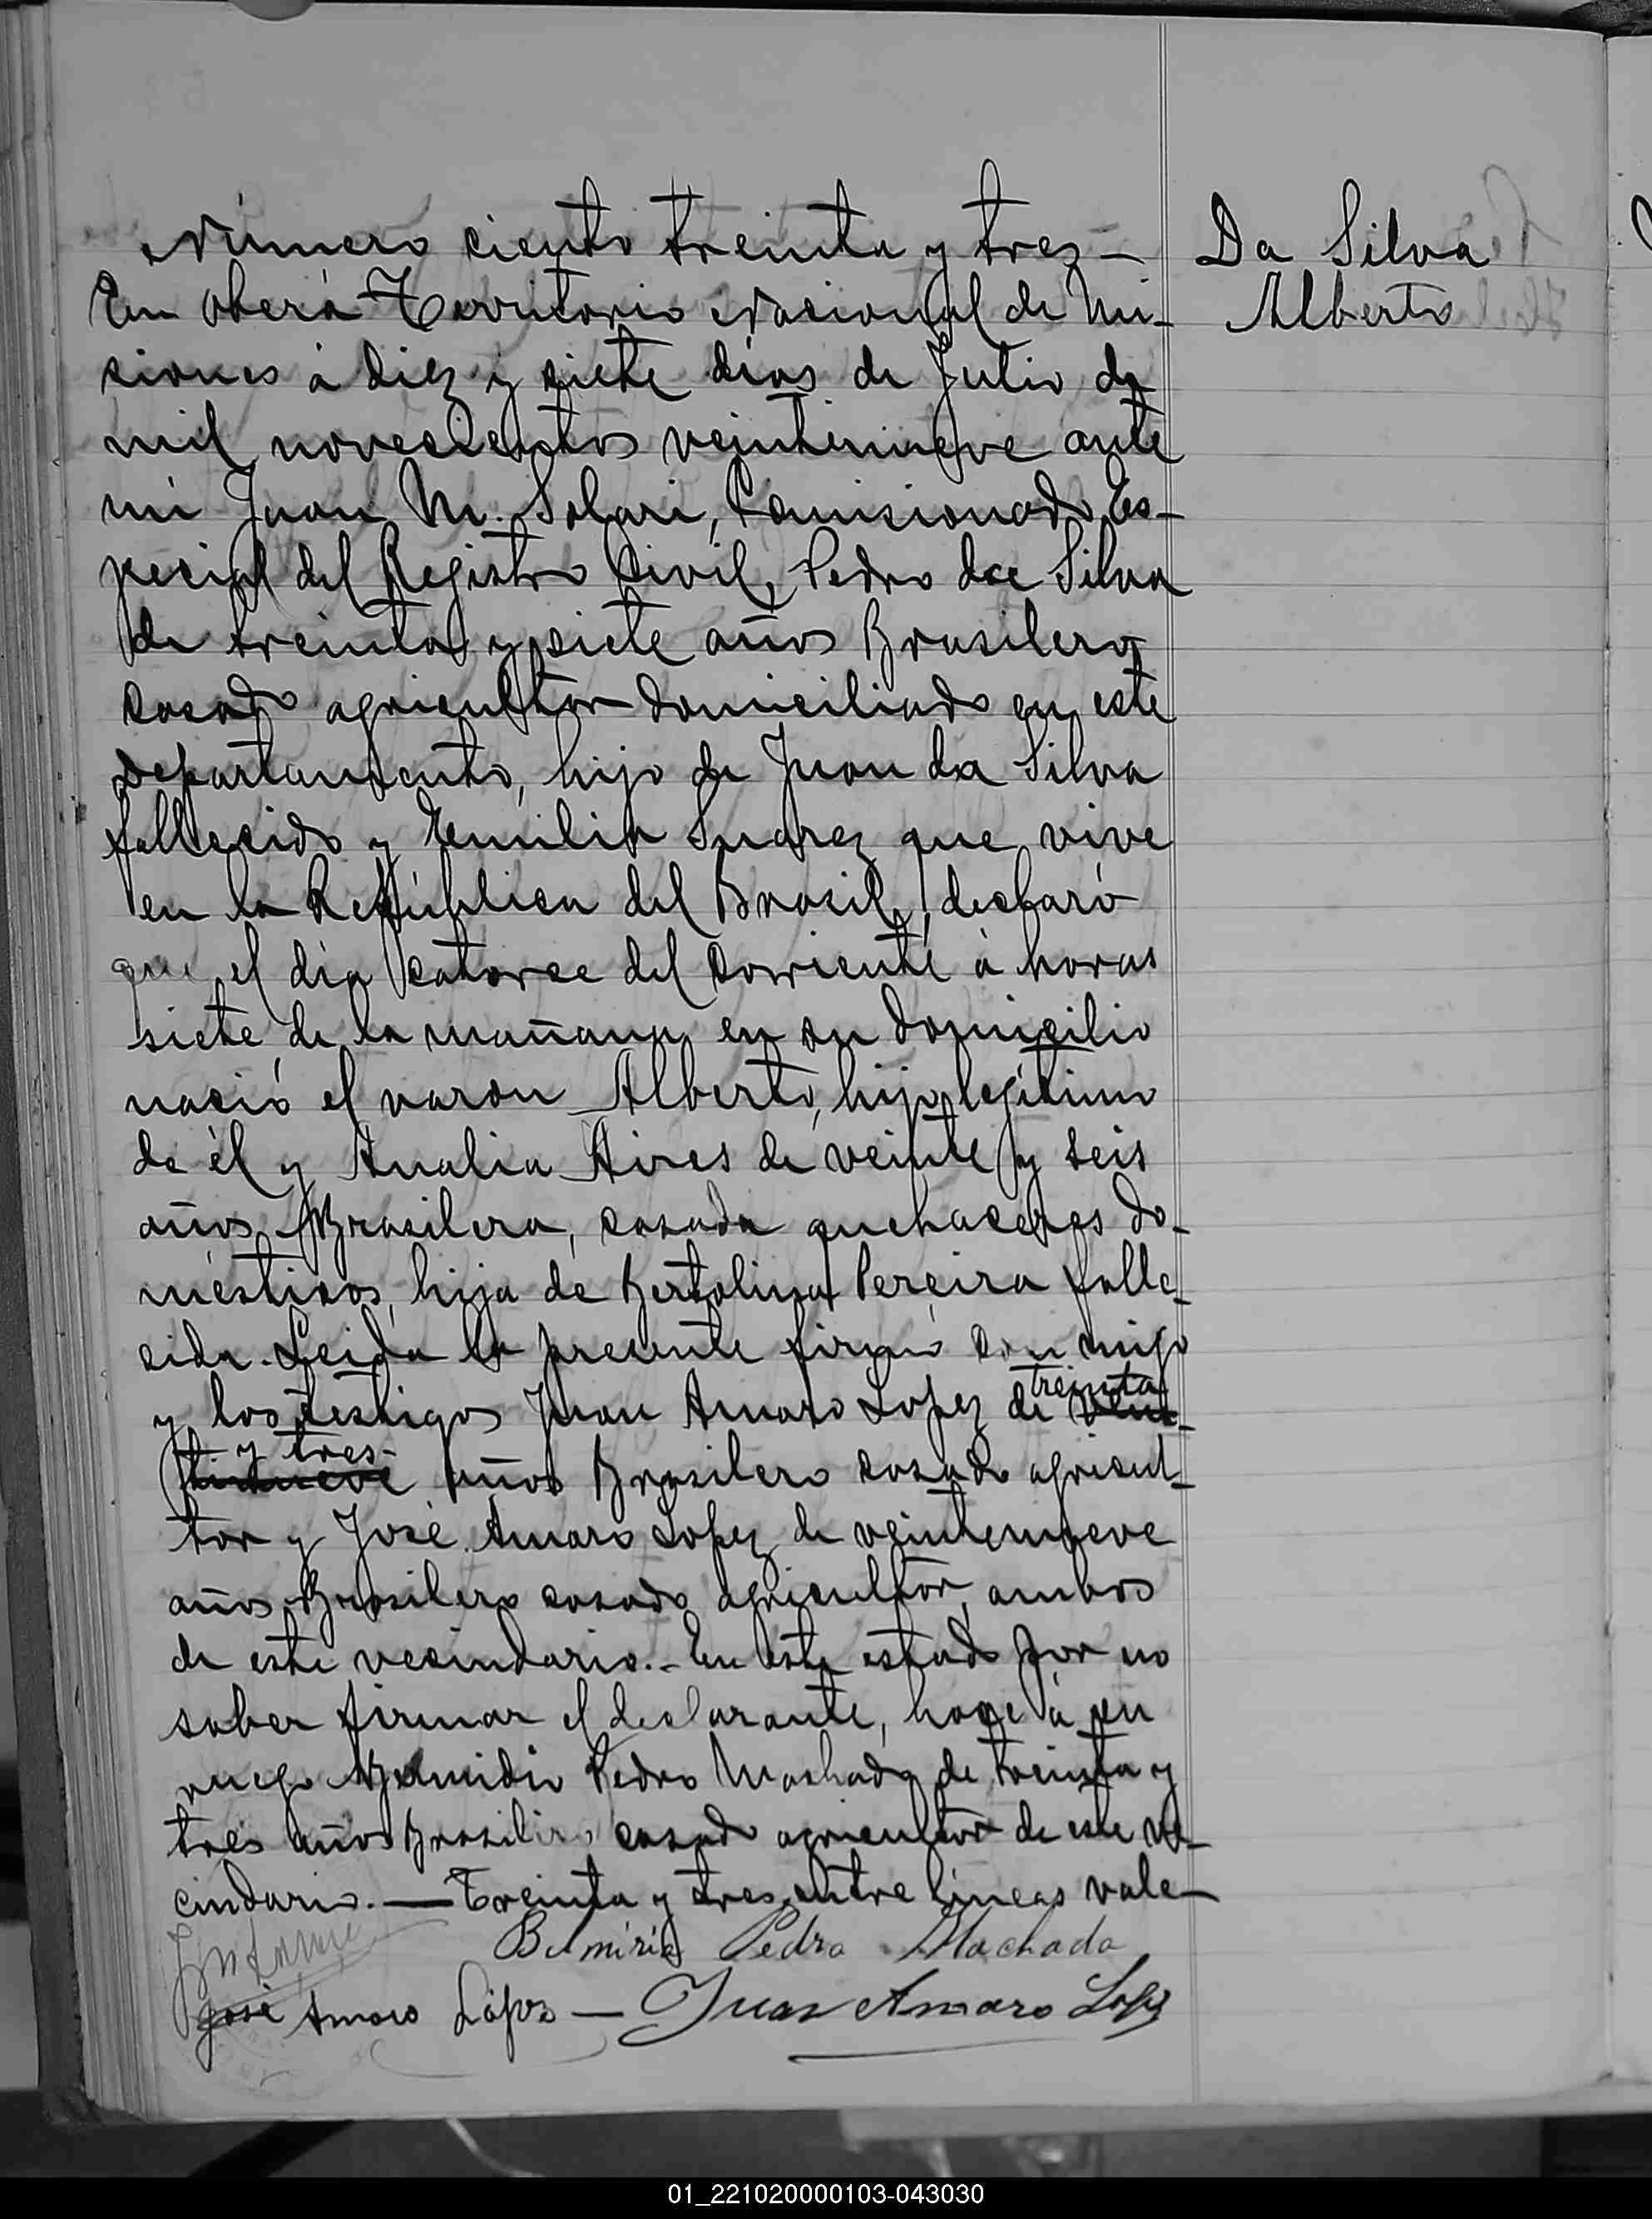 Número ciento treinta y tres —
Da Silva
Alberto
En Oberá Territorio Nacional de Mi-
siones á diez y siete días de Julio de
mil novecientos veintinueve ante
mi Juan M. Solari, Comisionado Es-
pecial del Registro Civil, Pedro da Silva
de treinta y siete años Brasilero
casado agricultor domiciliado en este
departamento, hijo de Juan da Silva
fallecido y Emilia Suarez que vive
en la República del Brasil, declaró
que el día catorce del corriente á horas
siete de la mañana en su domicilio
nació el varon Alberto, hijo legítimo
de él y Analia Aires de veinte y seis
años Brasilera, casada quehaceres do-
mésticos, hija de Bertolina Pereira falle-
cida. Leida la presente firmó conmigo
y los testigos Juan Amaro Lopez de treinta
y tres años Brasilero casado agricul-
tor y José Amaro Lopez de veintenueve
años Brasilero casado agricultor, ambos
de este vecindario. - En este estado por no
saber firmar el declarante, hace á su
ruego Pedro Machado de treinta y
tres años Brasilero casado agricultor de este ve-
cindario. — Treinta y tres entre lineas vale —
Pedro Machado
José Amaro López — Juan Amaro Lopez
01_221020000103-043030